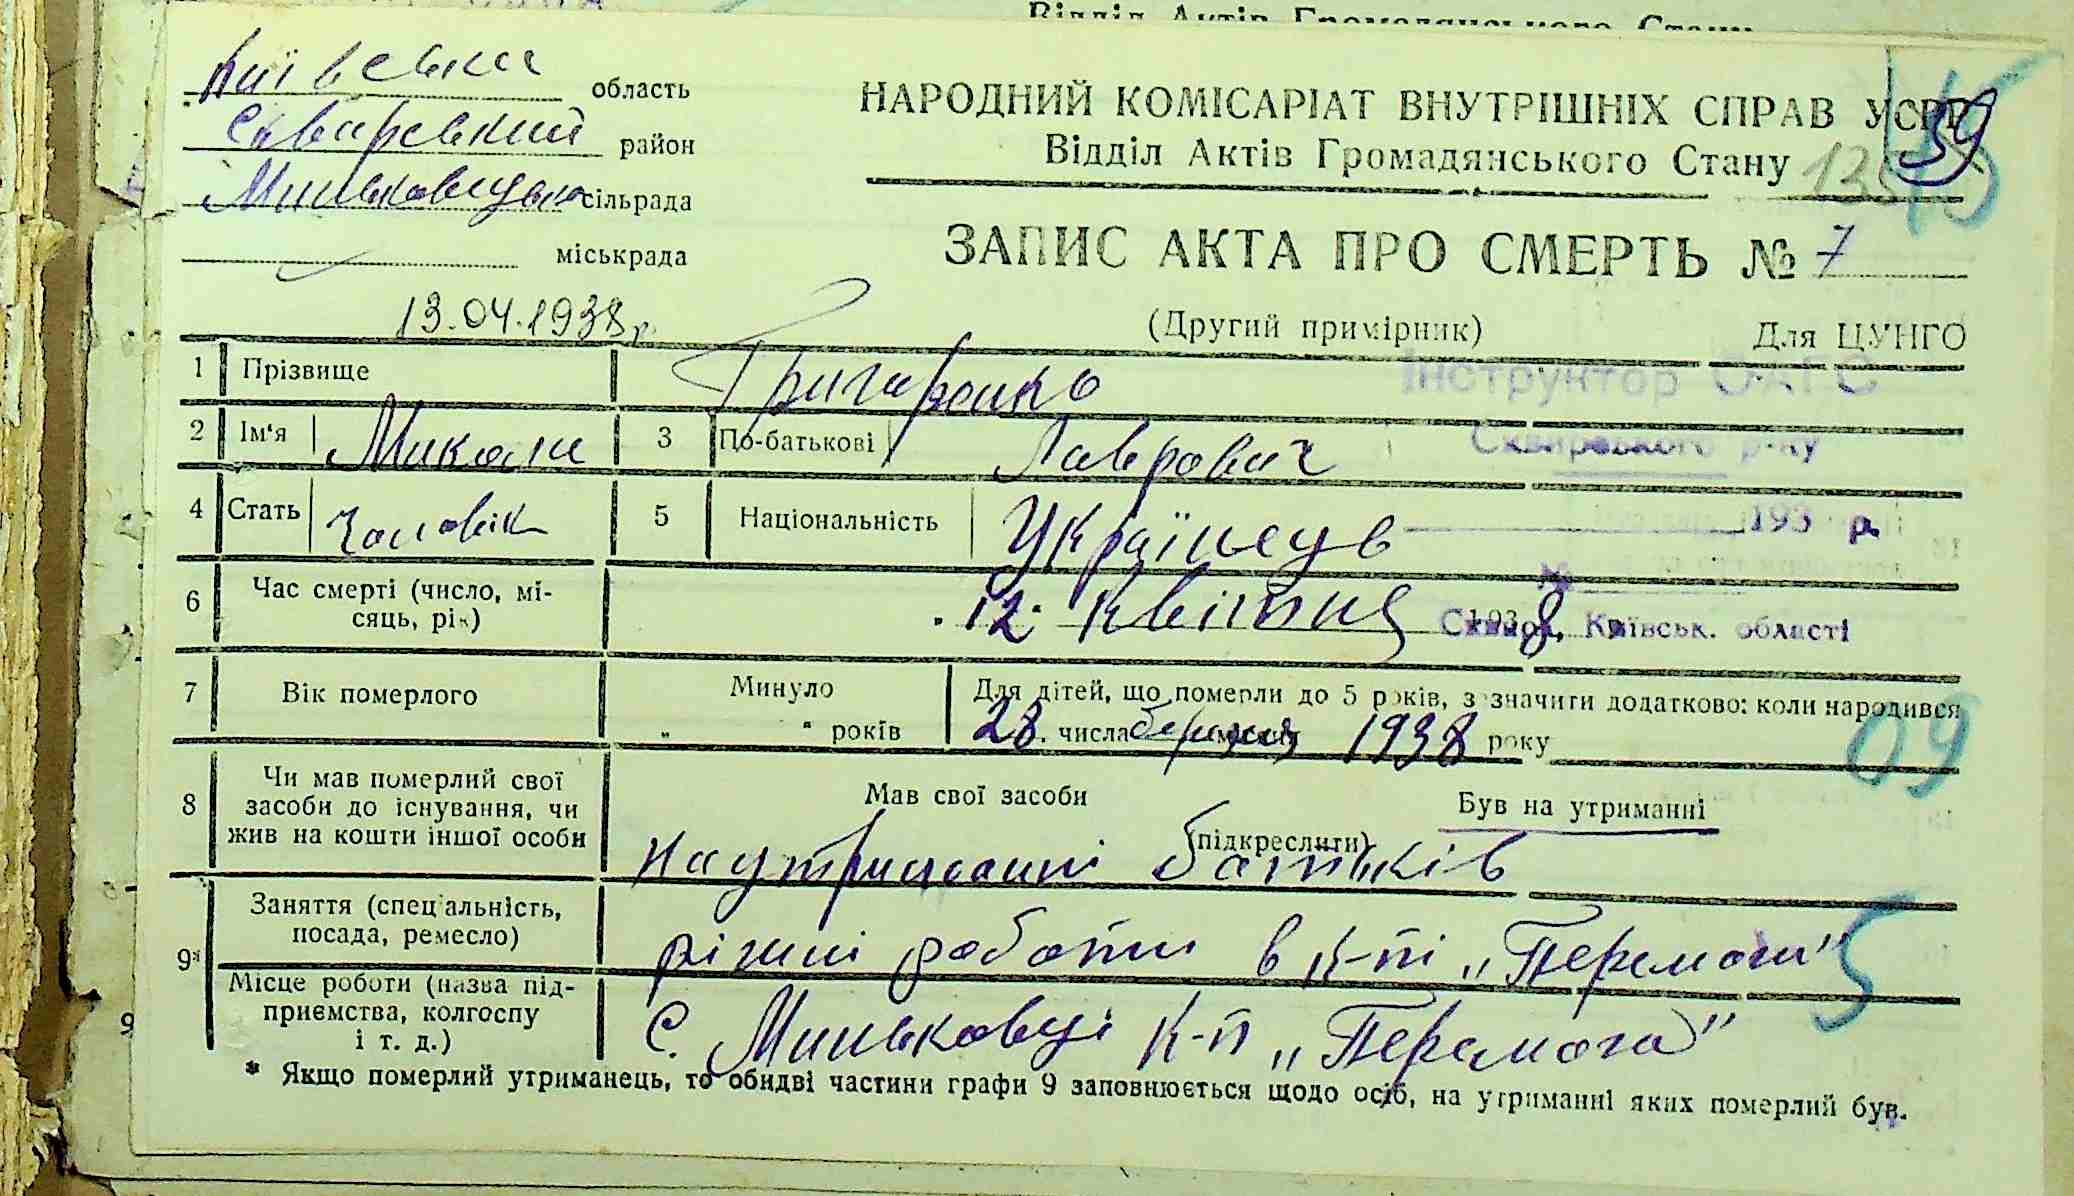 Відділ Актів Громадянського Стану
Київська область
Сквирський район
Миньковецька сільрада
міськрада
НАРОДНИЙ КОМІСАРІАТ ВНУТРІШНІХ СПРАВ УСРР
39
Відділ Актів Громадянського Стану
ЗАПИС АКТА ПРО СМЕРТЬ № 7
13.04.1938 р.
(Другий примірник)
Для ЦУНГО
Інструктор ОАГС
Сквирського р-ну
193 р.
Сквира, Київськ. області
1 Прізвище Григоренко
2 Ім'я Микола 3 По-батькові Лаврович
4 Стать чоловік 5 Національність Українець
6 Час смерті (число, мі-
сяць, рік) 12 квітня 1938
7 Вік померлого Минуло
" " років
Для дітей, що померли до 5 років, зазначити додатково: коли народився
28 числа березня місяця 1938 року
09
8 Чи мав померлий свої
засоби до існування, чи
жив на кошти іншої особи
Мав свої засоби Був на утриманні
(підкреслити)
на утриманні батьків
9* Заняття (спеціальність,
посада, ремесло)
різні роботи в к-пі „Перемога"
5
Місце роботи (назва під-
приємства, колгоспу
і т. д.)
С. Миньковці к-п „Перемога"
* Якщо померлий утриманець, то обидві частини графи 9 заповнюється щодо осіб, на утриманні яких померлий був.